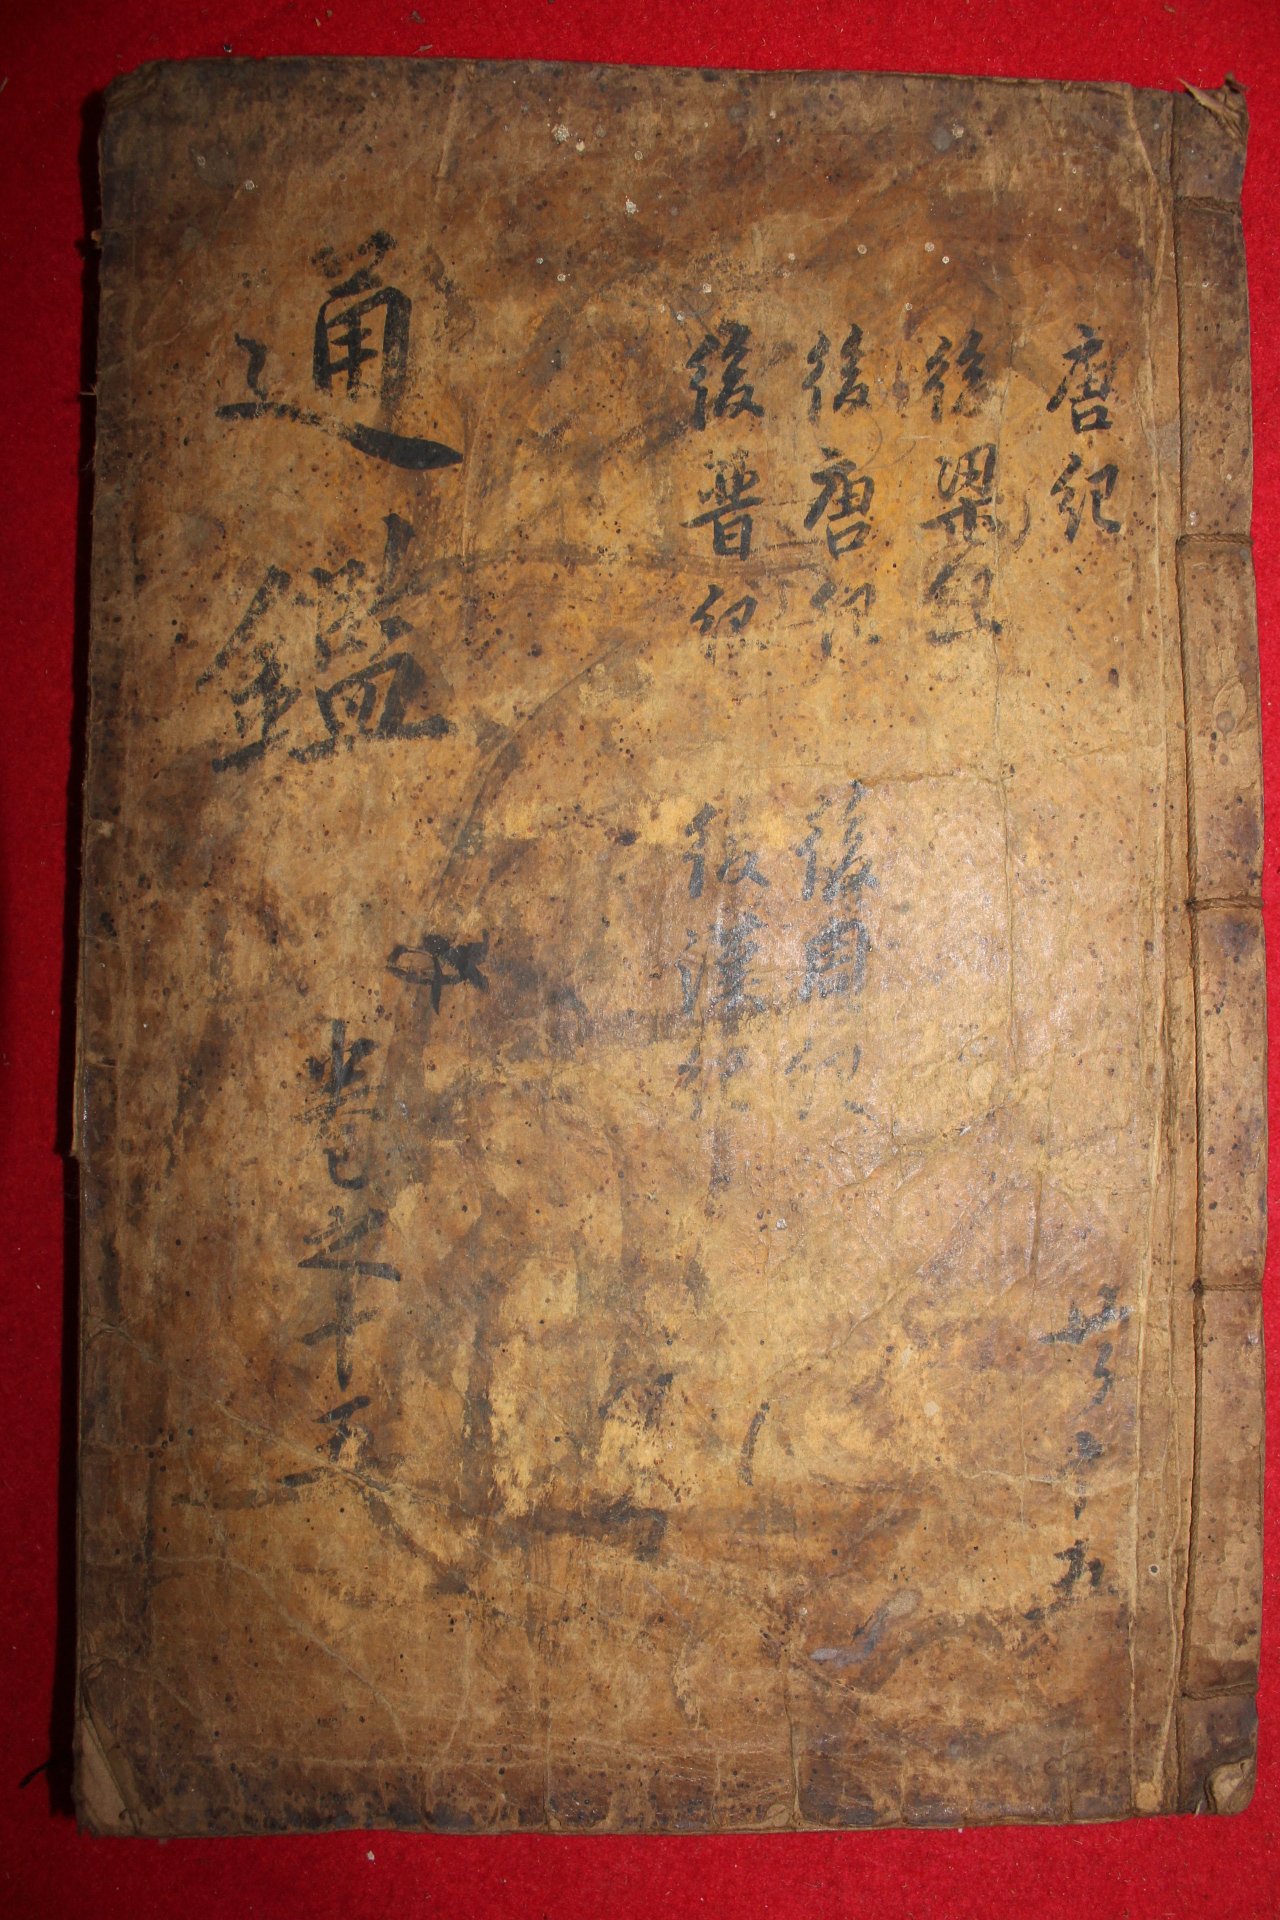 唐紀
後梁紀
後唐紀
後周紀
後晉紀
後漢紀
共十五
通鑑
卷之十五